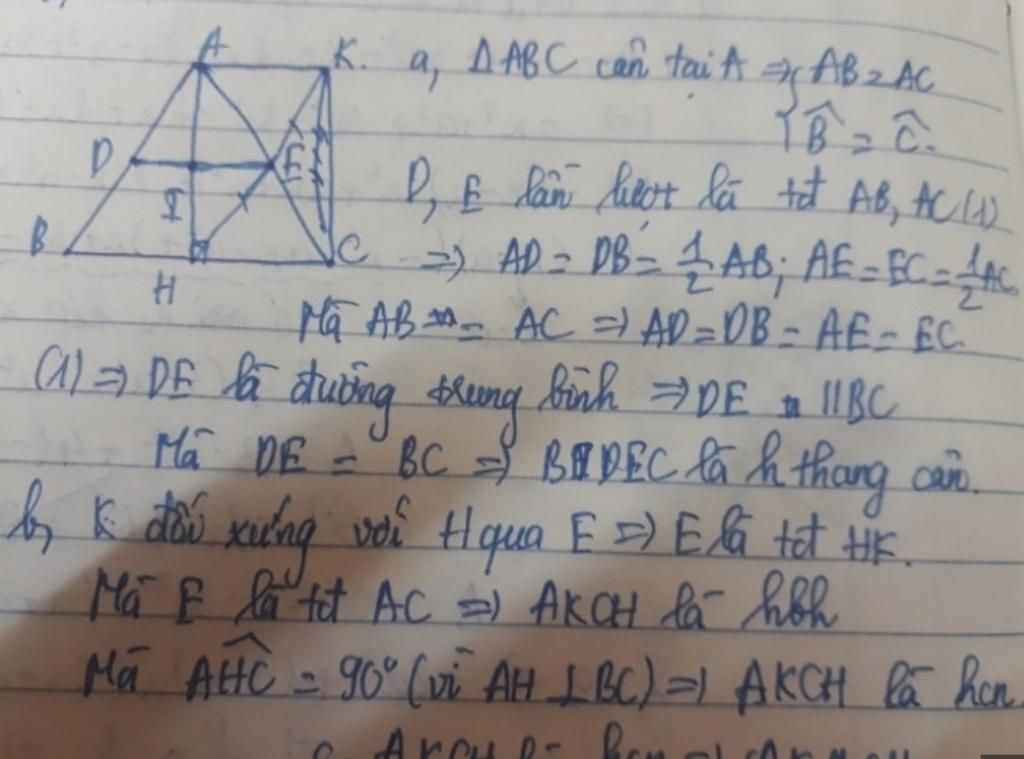 A
K.
D
E
I
B
C
H
a, ΔABC cân tại A ⇒ { AB = AC
B̂ = Ĉ.
D, E lần lượt là tđ AB, AC (1)
⇒ AD = DB = 1/2 AB; AE = EC = 1/2 AC
Mà AB = AC ⇒ AD = DB = AE = EC
(1) ⇒ DE là đường trung bình ⇒ DE // BC
Mà DE = BC ⇒ BDEC là h thang cân.
b, K đối xứng với H qua E ⇒ E là tđ HK.
Mà E là tđ AC ⇒ AKCH là hbh
Mà AHC = 90° (vì AH ⊥ BC) ⇒ AKCH là hcn.